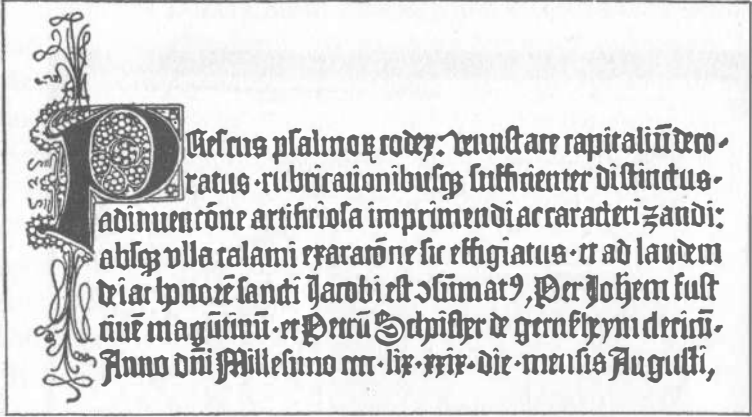 PResens psalmoꝝ codex: venustate capitaliū deco-
ratus · rubricationibusqꝫ sufficienter distinctus ·
adinuencōne artificiosa imprimendi ac caracterizandi:
absqꝫ vlla calami exaracōne sic effigiatus · et ad laudem
dei ac honorē sancti Jacobi est ↄsūmatꝰ, Per Johem fust
ciuē magūtinū · et Petrū Schoiffer de gernssheym clericū ·
Anno dn̄i Millesimo cccc · lix · xxix · die · mensis Augusti,